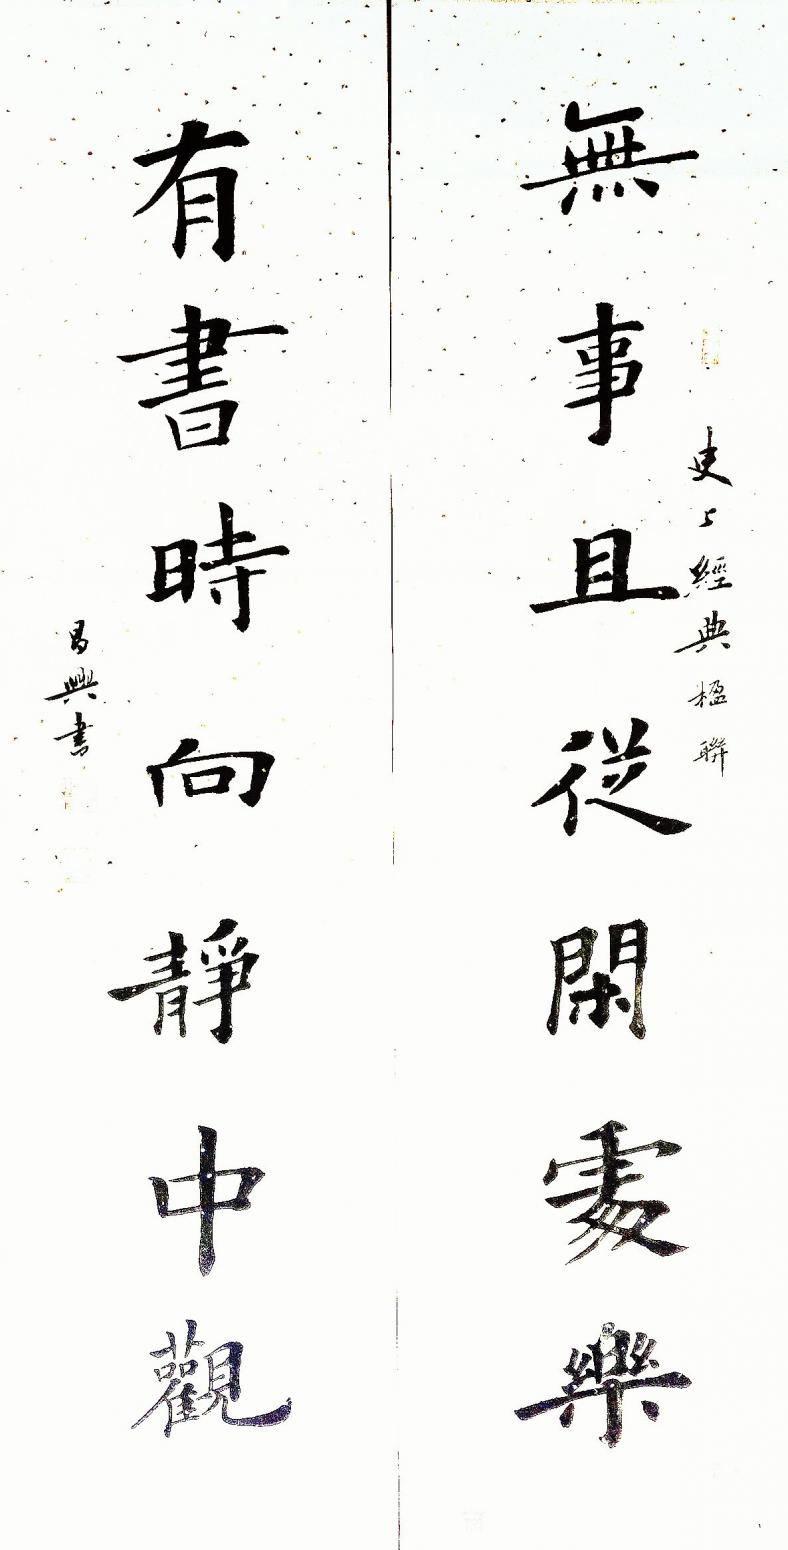 無事且從閑處樂
史上經典楹聯
有書時向靜中觀
昌興書